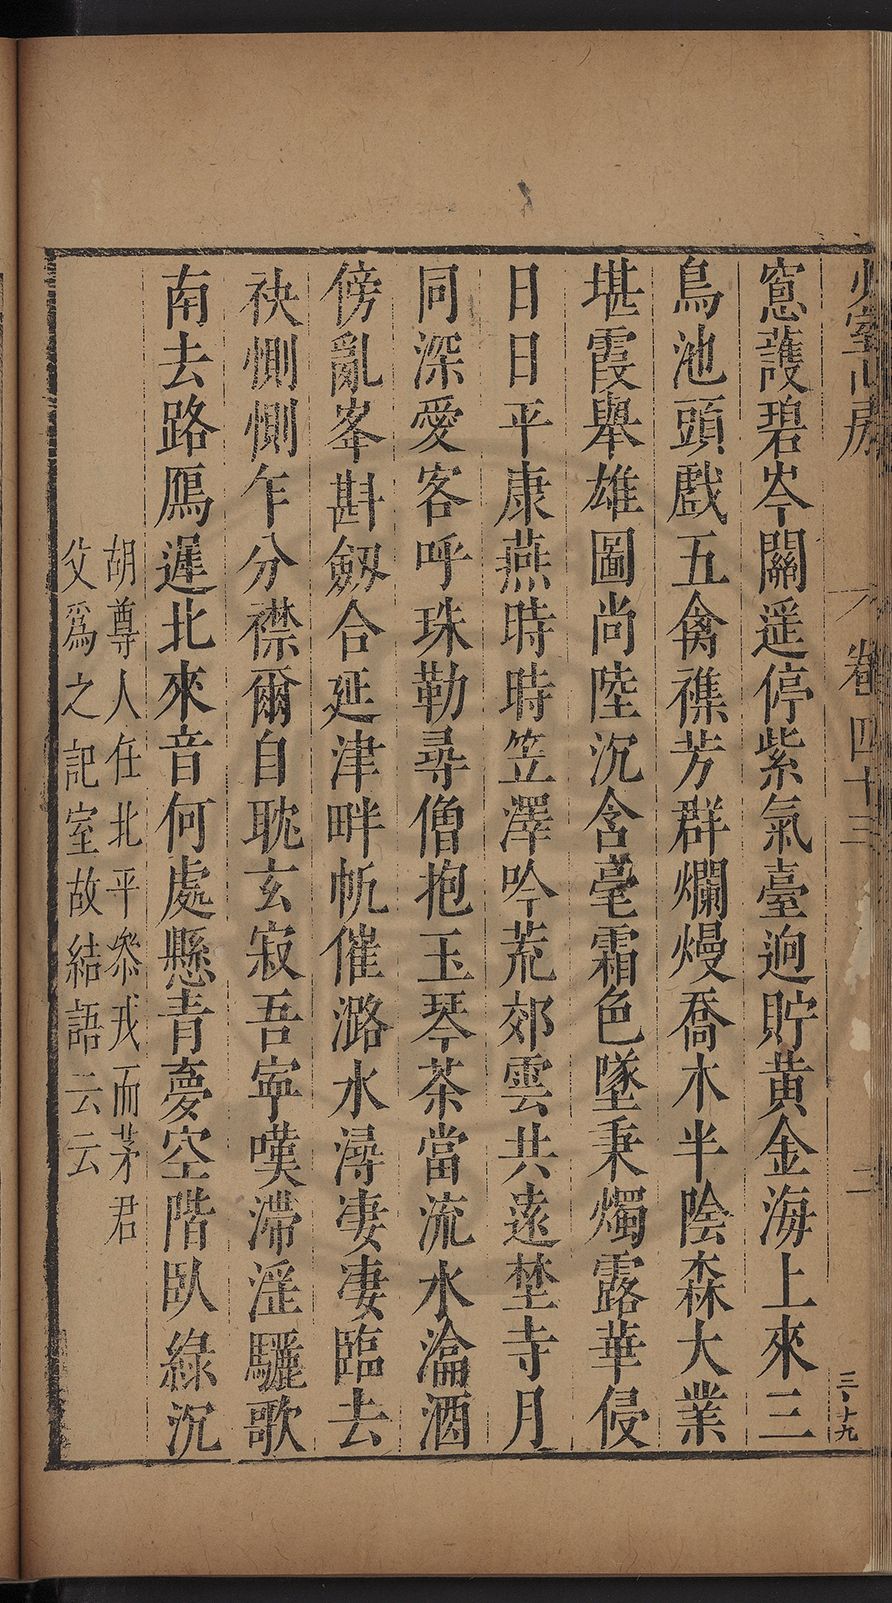 少室山房
卷四十三
二
三·十九
窓護碧岑關遥停紫氣臺逈貯黄金海上來三
鳥池頭戲五禽襍芳群爛熳喬木半陰森大業
堪霞舉雄圖尚陸沉含毫霜色墜秉燭露華侵
日日平康燕時時笠澤吟荒郊雲共遠埜寺月
同深愛客呼珠勒尋僧抱玉琴茶當流水瀹酒
傍亂峯斟劒合延津畔帆催潞水潯凄凄臨去
袂惻惻乍分襟爾自耽玄寂吾寧嘆滯淫驪歌
南去路鴈遲北來音何處懸青夢空階臥綠沉
胡尊人任北平叅戎而茅君
父爲之記室故結語云云